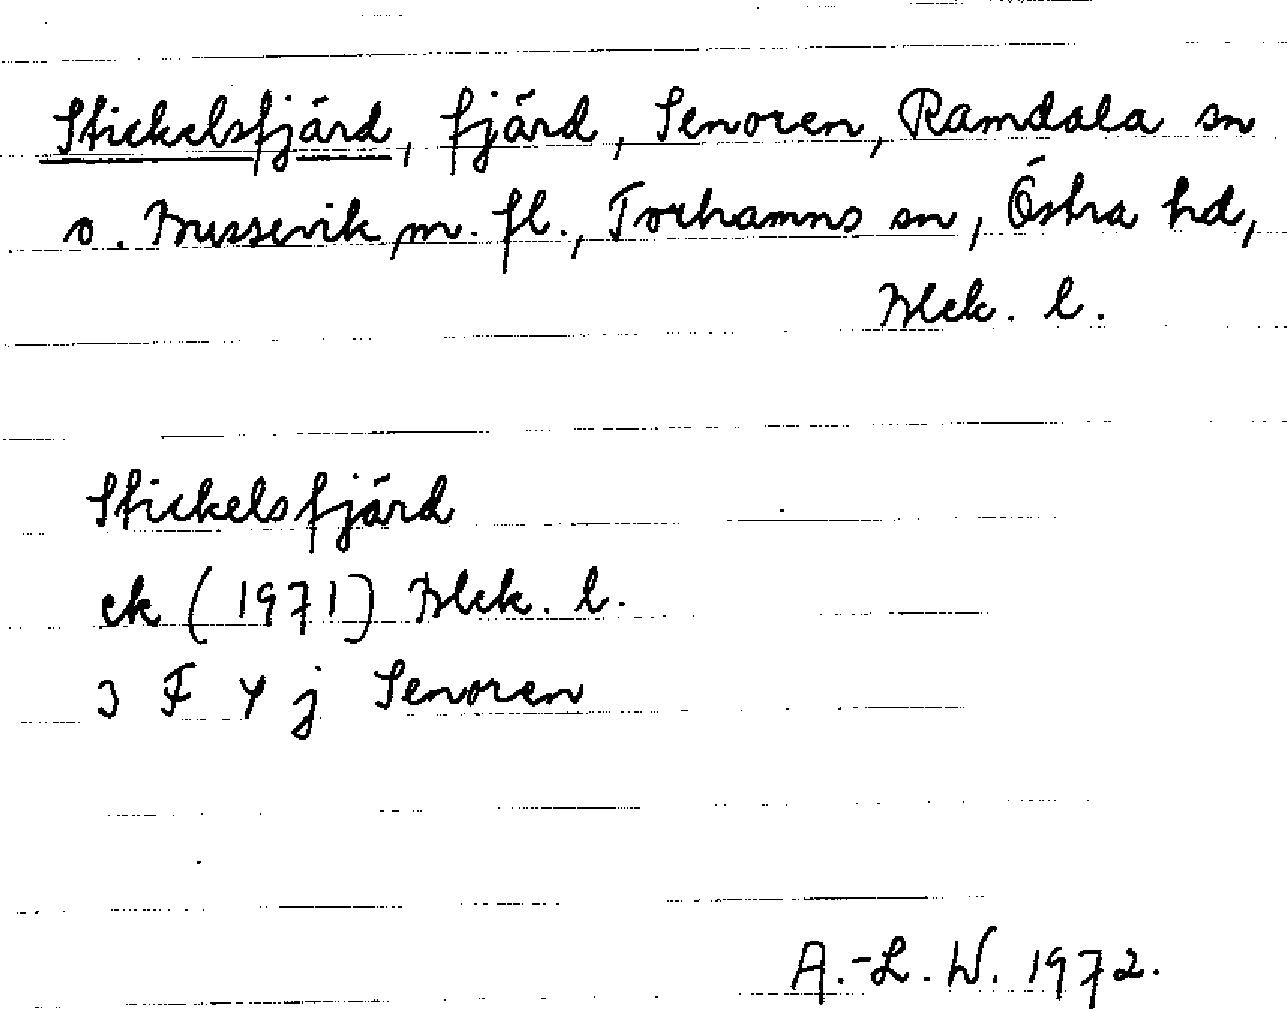 Stickelsfjärd, fjärd, Senoren, Ramdala sn
o. Bussevik m. fl., Torhamns sn, Östra hd,
Blek. l.
Stickelsfjärd
ek (1971) Blek. l.
3 F 4 j Senoren
A.-L. W. 1972.